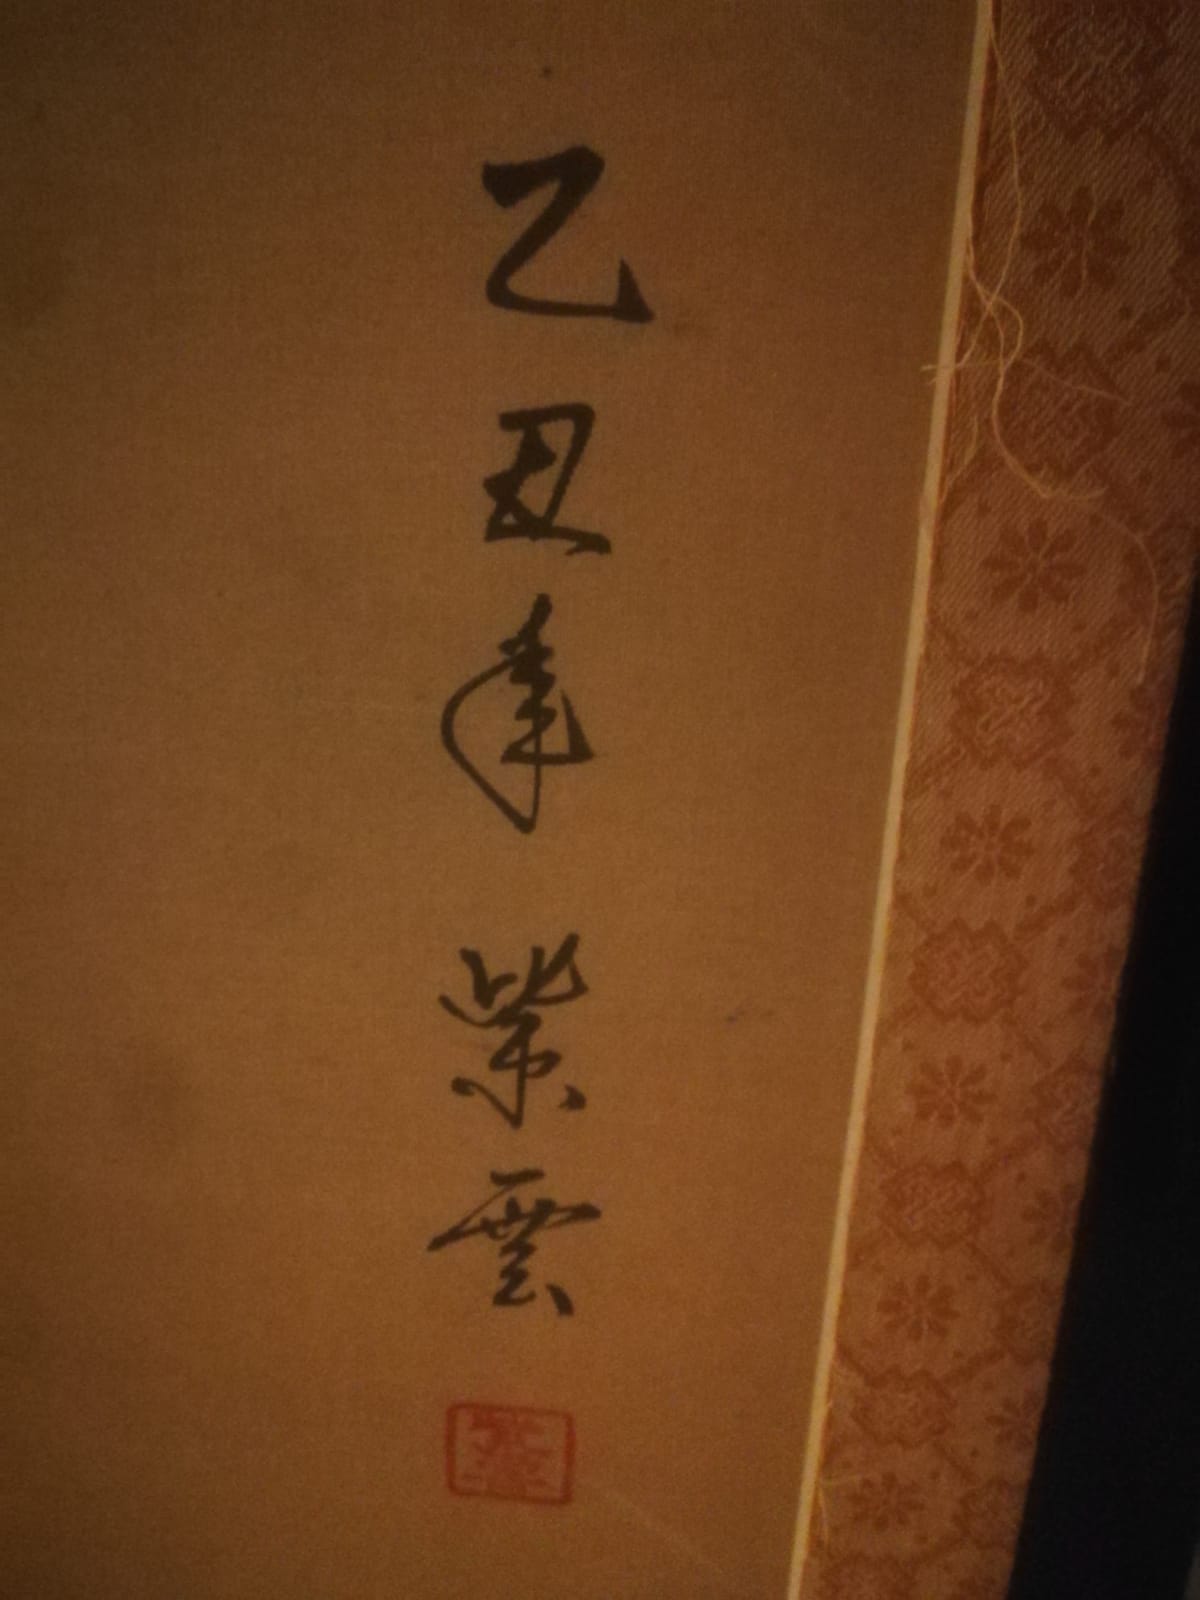 乙丑年 紫雲